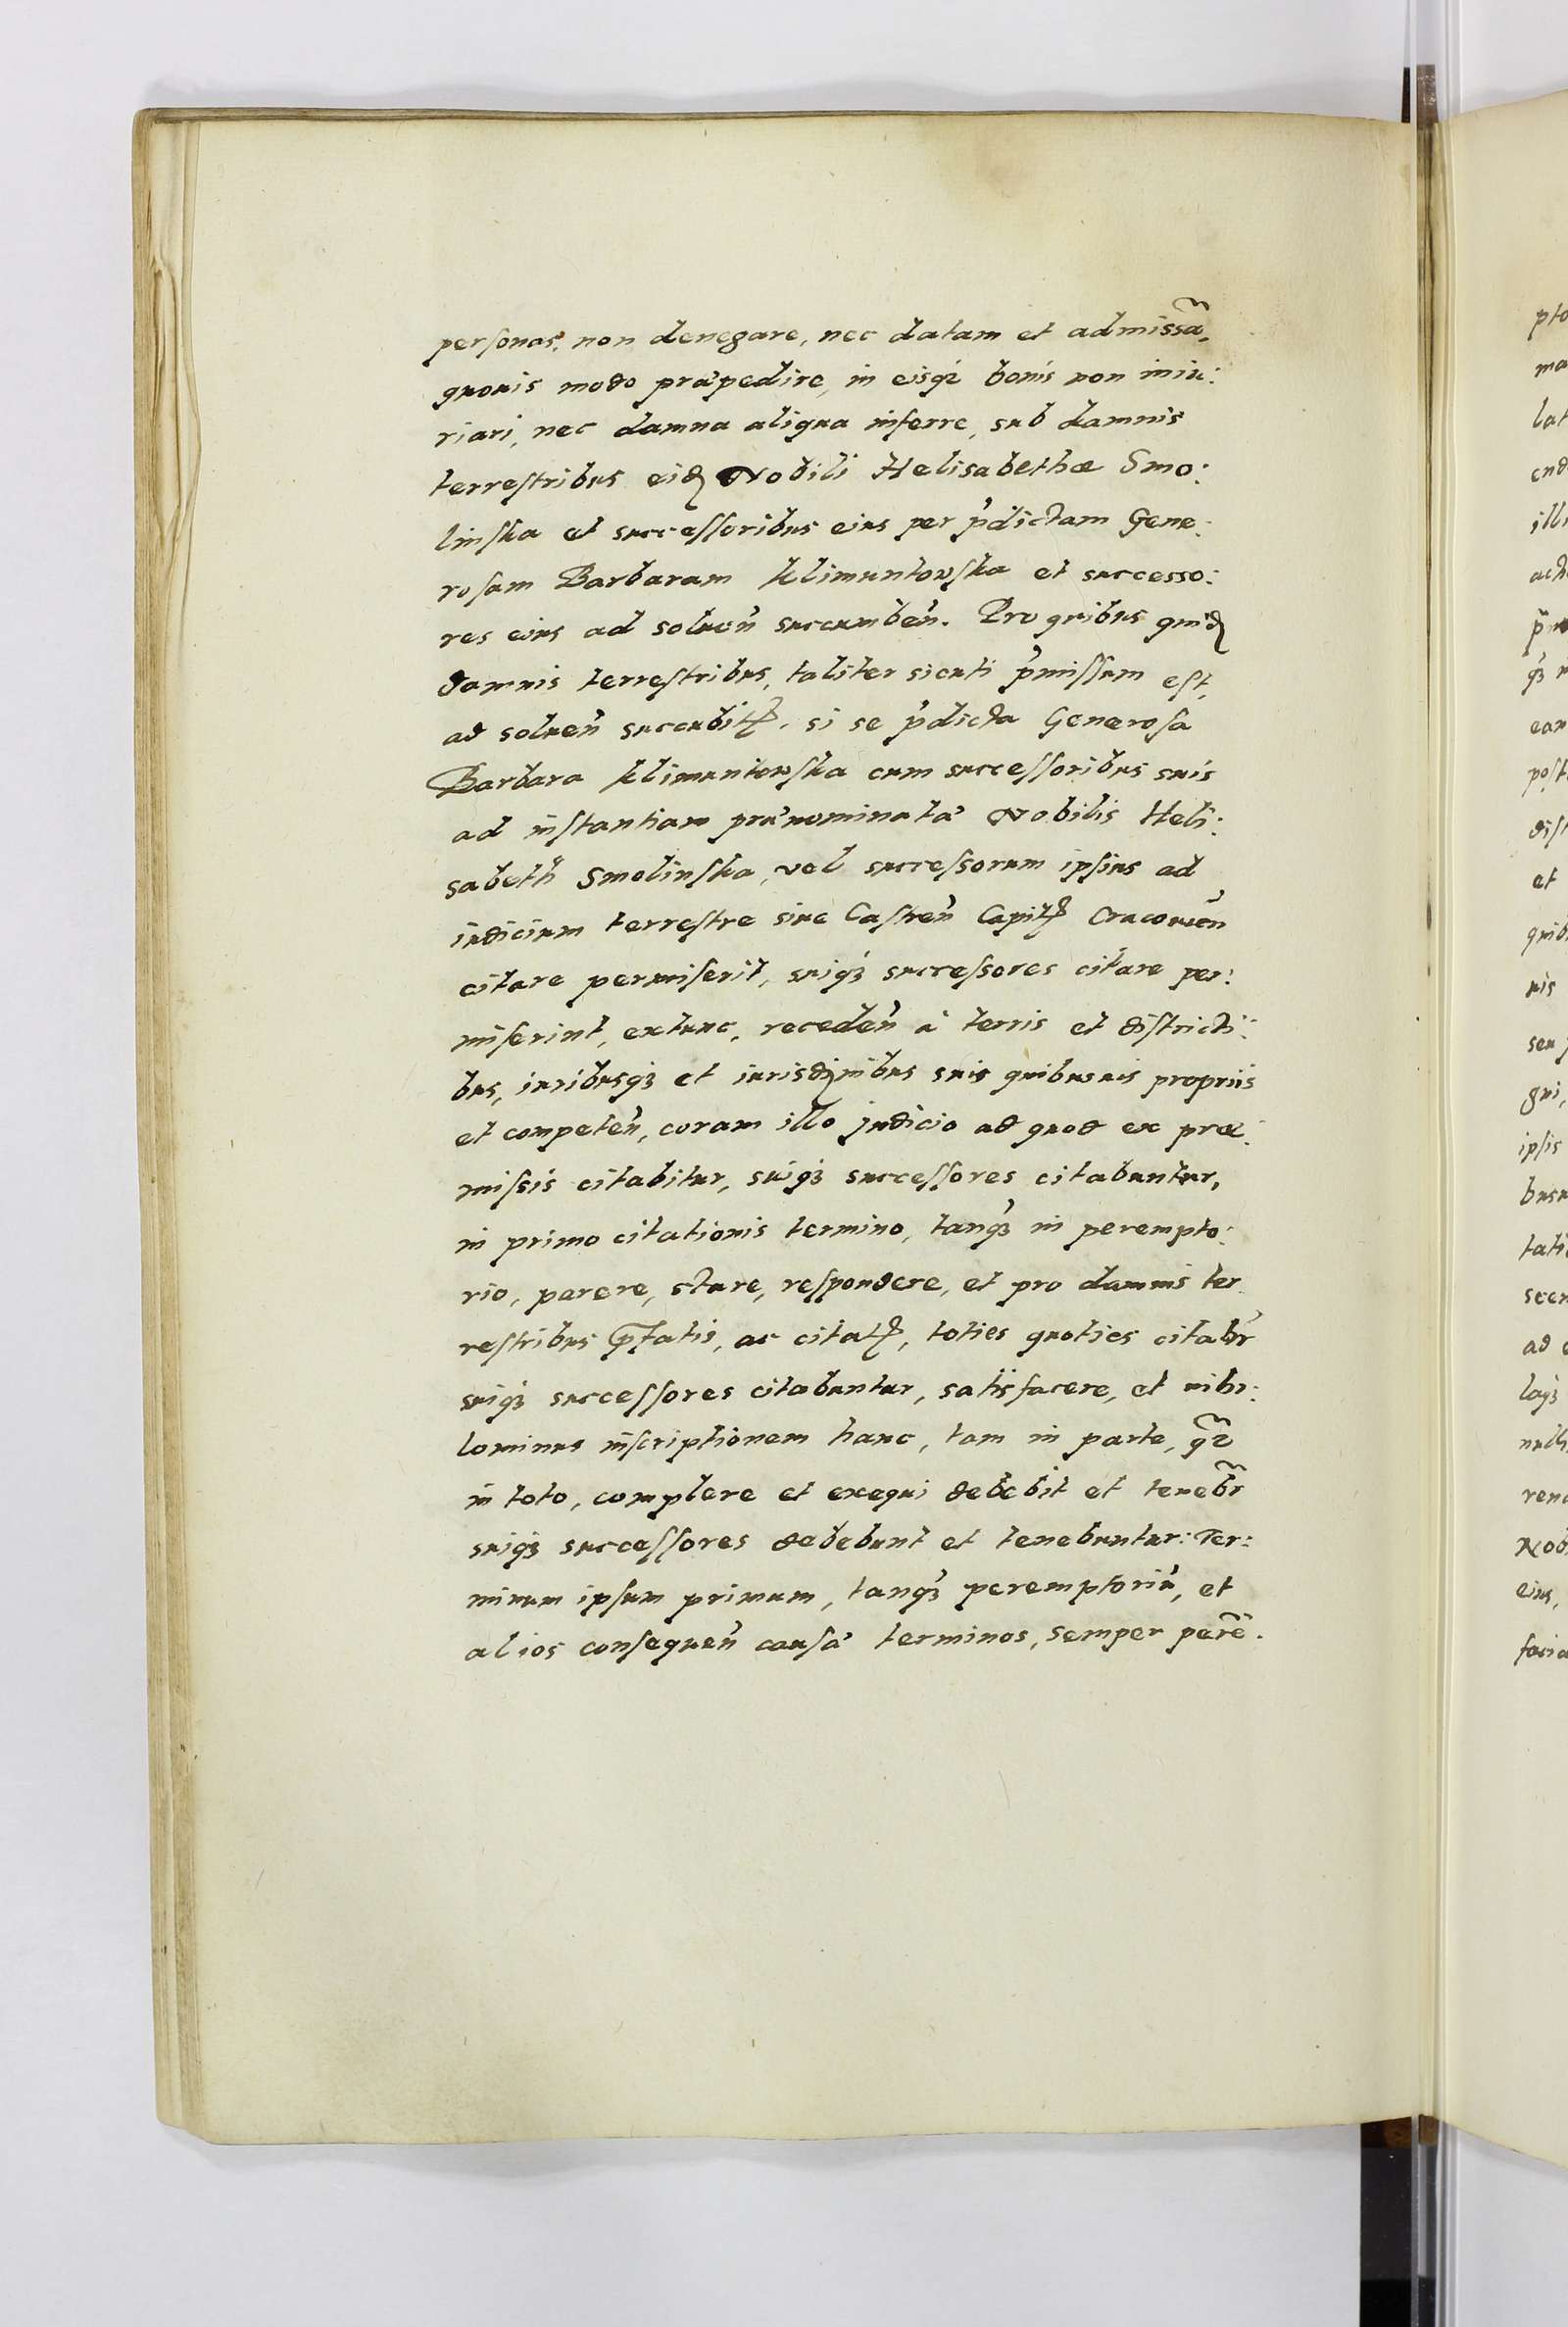 personas, non denegare, nec datam et admissã,
quouis modo præpedire, in eisq3 bonis non iniu:
riari, nec damna aliqua inferre, sub damnis
terrestribus eid Nobili Helisabethæ Smo:
linska et successoribus eius per p̃dictam Gene:
rosam Barbaram Klimuntowska et successo:
res eius ad soluen̄ succumben̄. Pro quibus quid
damnis terrestribus, taliter sicuti p̃missum est,
ad soluen̄ succubit, si se p̃dicta Generosa
Barbara Klimuntowska cum successoribus suis
ad instantiam prænominatæ Nobilis Heli:
sabeth Smolinska, vel successorum ipsius ad
iudicium terrestre siue Castren̄ Capit Cracouien̄
citare permiserit, suiq3 successores citare per:
miserint, extunc, receden̄ à terris et districti:
bus, iuribusq3 et iurisdnibus suis quibusuis propriis
et competen̄, coram illo judicio ad quod ex præ:
missis citabitur, suiq3 successores citabuntur,
in primo citationis termino, tanq3 in perempto:
rio, parere, stare, respondere, et pro damnis ter
restribus p̃fatis, ac citat, toties quoties citabr̃
suiq3 successores citabuntur, satisfacere, et nihi:
lominus inscriptionem hanc, tam in parte, q̃3
in toto, complere et exequi debebit et tenebr̃
suiq3 successores debebunt et tenebuntur: Ter:
minum ipsum primum, tanq3 peremptoriũ, et
alios consequen̄ causæ terminos, semper perẽ:
pto
ma
lat
end
ill
acto
q3
ear
post
dis
et
quib
uis
seu
gni,
ipsis
busu
tati
scen
ad
laq3
null
reno
Nob
eius,
facia